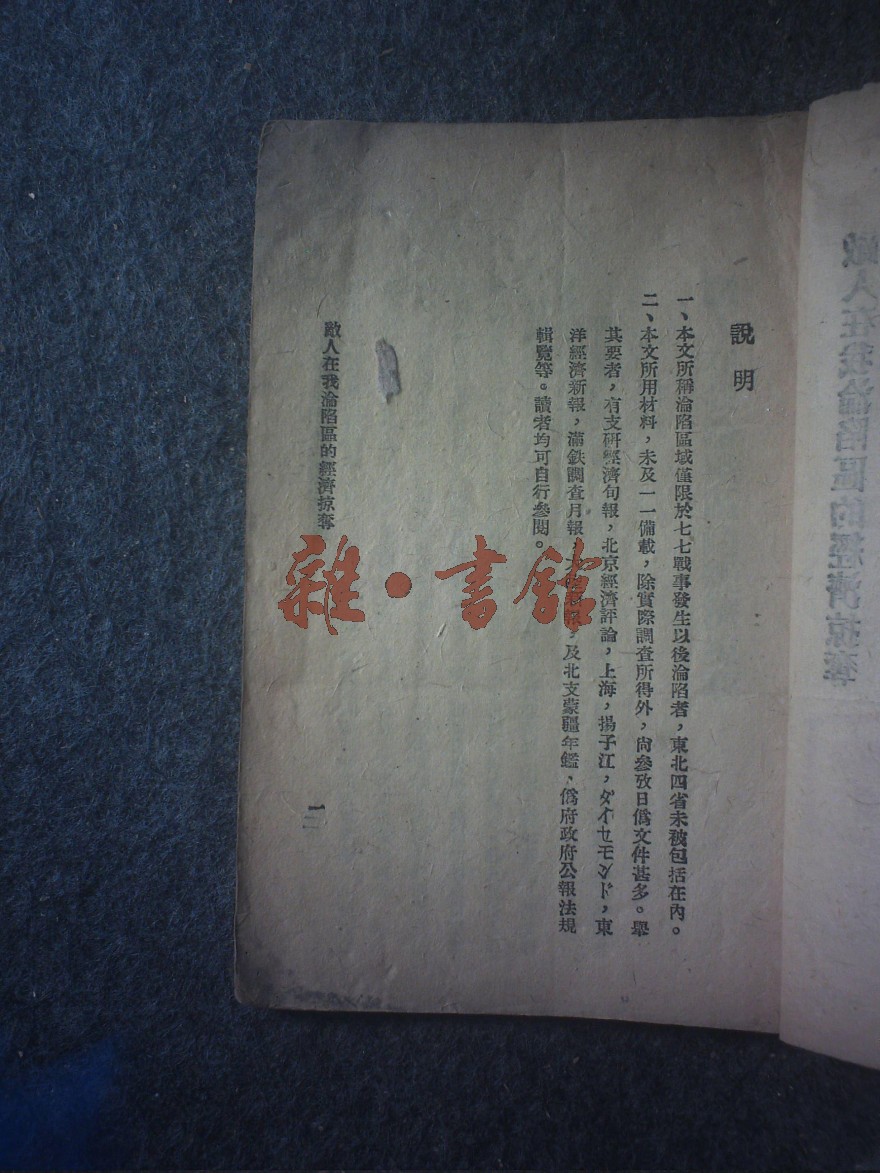 說明
一、本文所稱淪陷區域僅限於七七戰事發生以後淪陷者，東北四省未被包括在內。
二、本文所用材料，未及一一備載，除實際調查所得外，尙參攷日僞文件甚多。舉
其要者，有支研經濟旬報，北京經濟評論，上海，揚子江，ダイヤモンド，東
洋經濟新報，滿鉄調査月報，報，及北支蒙疆年鑑、僞府政府公報法規
輯覽等。讀者均可自行參閱。
敵人在我淪陷區的經濟掠奪
一
雜·書館
敵人在我淪陷區的經濟掠奪